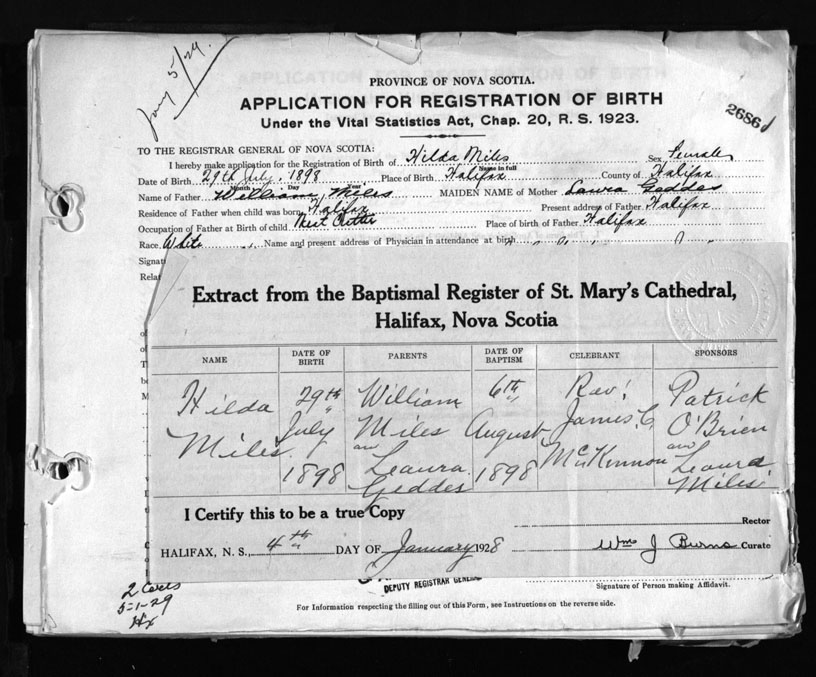 Jany 5/29.
PROVINCE OF NOVA SCOTIA.
APPLICATION FOR REGISTRATION OF BIRTH
Under the Vital Statistics Act, Chap. 20, R. S. 1923.
TO THE REGISTRAR GENERAL OF NOVA SCOTIA:
I hereby make application for the Registration of Birth of Hilda Miles Sex Female
Name in full
Date of Birth 29th July 1898 Place of Birth Halifax County of Halifax
Month Day Year
Name of Father William Miles MAIDEN NAME of Mother Laura Geddes
Residence of Father when child was born Halifax Present address of Father Halifax
Occupation of Father at Birth of child Meat Cutter Place of birth of Father Halifax
Race White Name and present address of Physician in attendance at birth
Signat
Relat
Extract from the Baptismal Register of St. Mary's Cathedral,
Halifax, Nova Scotia
NAME DATE OF BIRTH PARENTS DATE OF BAPTISM CELEBRANT SPONSORS
Hilda 29th William 6th Rav! Patrick
Miles. July Miles August James. C. O'Brien
1898 and Leaura 1898 McKinnon and Leaura
Geddes Miles.
I Certify this to be a true Copy
Rector
HALIFAX, N. S., 4th DAY OF January 1928 Wm J Burns Curate
DEPUTY REGISTRAR GENERAL
Signature of Person making Affidavit.
For Information respecting the filling out of this Form, see Instructions on the reverse side.
2 Certs
5-1-29